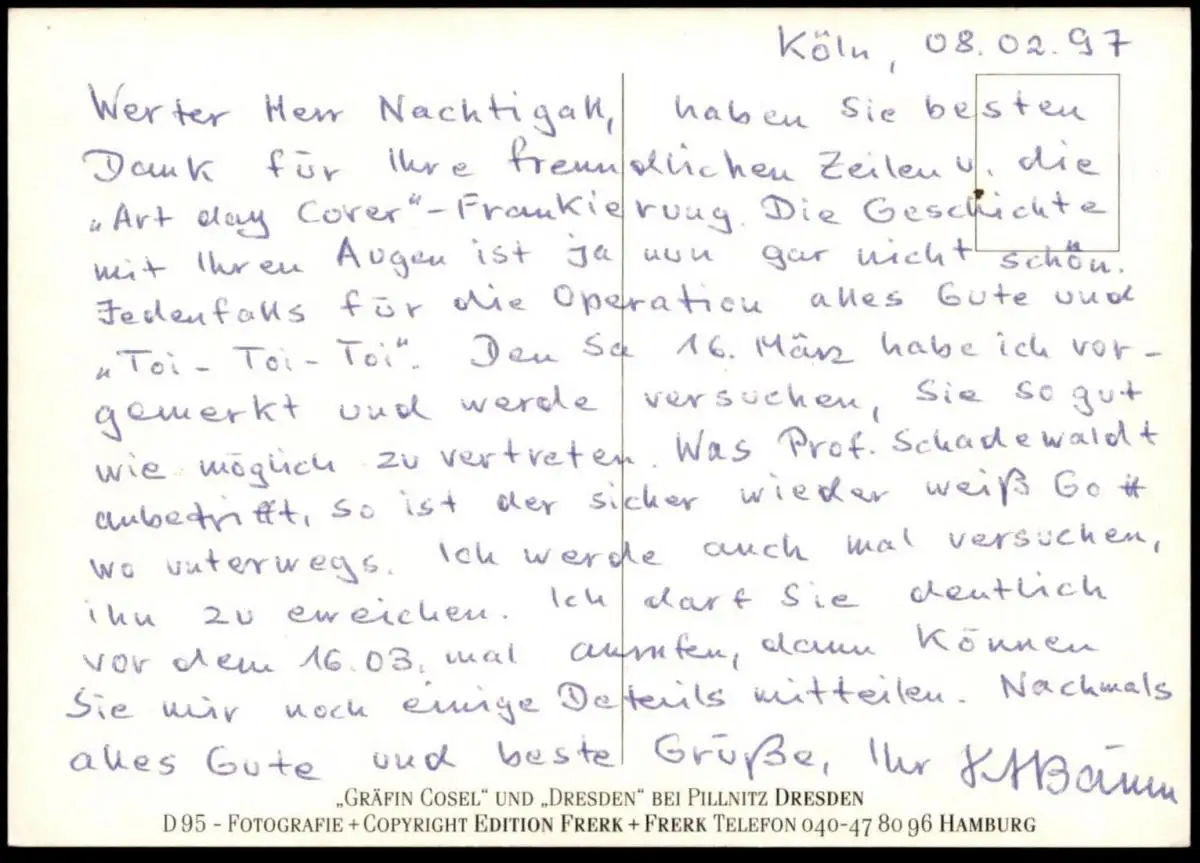 Köln, 08.02.97
Werter Herr Nachtigall, haben Sie besten
Dank für Ihre freundlichen Zeilen u. die
„Art day Cover“-Frankierung. Die Geschichte
mit Ihren Augen ist ja nun gar nicht schön.
Jedenfalls für die Operation alles Gute und
„Toi-Toi-Toi“. Den Sa 16. März habe ich vor-
gemerkt und werde versuchen, Sie so gut
wie möglich zu vertreten. Was Prof. Schadewaldt
anbetrifft, so ist der sicher wieder weiß Gott
wo unterwegs. Ich werde auch mal versuchen,
ihn zu erreichen. Ich darf Sie deutlich
vor dem 16.03. mal anrufen, dann können
Sie mir noch einige Details mitteilen. Nachmals
alles Gute und beste Grüße, Ihr
„GRÄFIN COSEL“ UND „DRESDEN“ BEI PILLNITZ DRESDEN
D 95 - FOTOGRAFIE + COPYRIGHT EDITION FRERK + FRERK TELEFON 040-47 80 96 HAMBURG